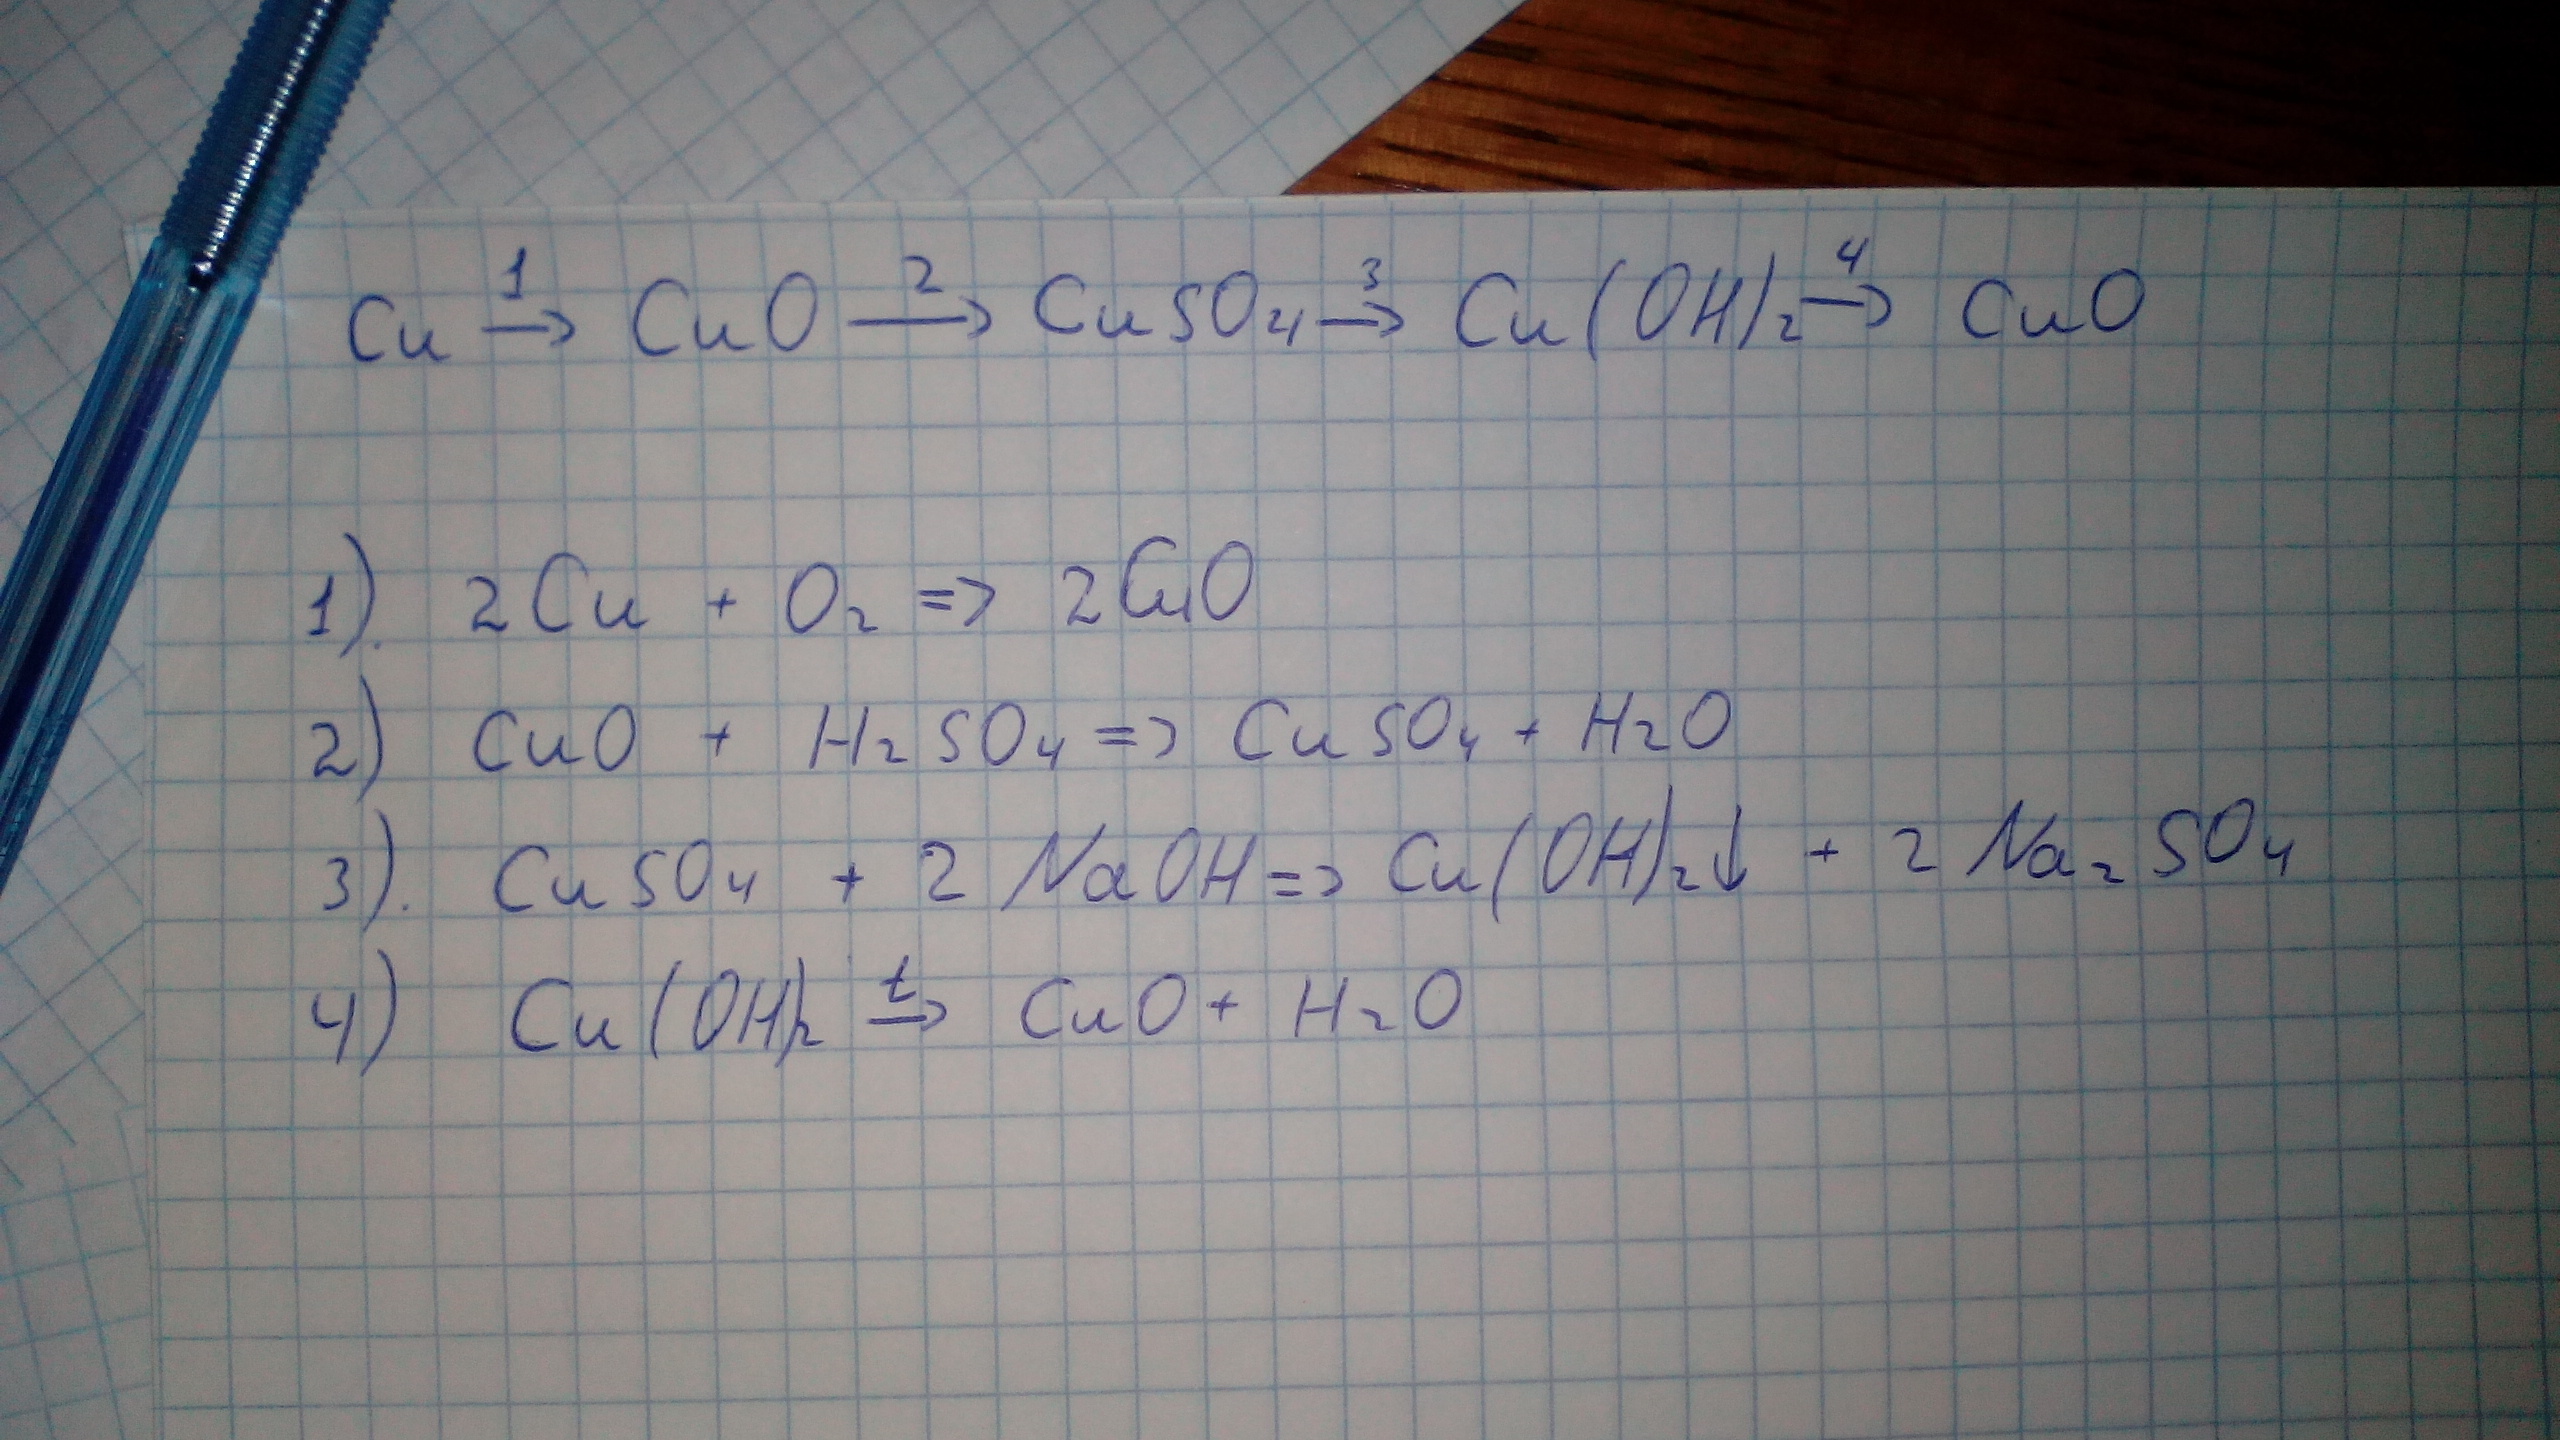 Cu 1→ CuO 2→ CuSO₄ 3→ Cu(OH)₂ 4→ CuO
1). 2Cu + O₂ => 2CuO
2) CuO + H₂SO₄ => CuSO₄ + H₂O
3). CuSO₄ + 2NaOH => Cu(OH)₂↓ + 2Na₂SO₄
4) Cu(OH)₂ t→ CuO + H₂O